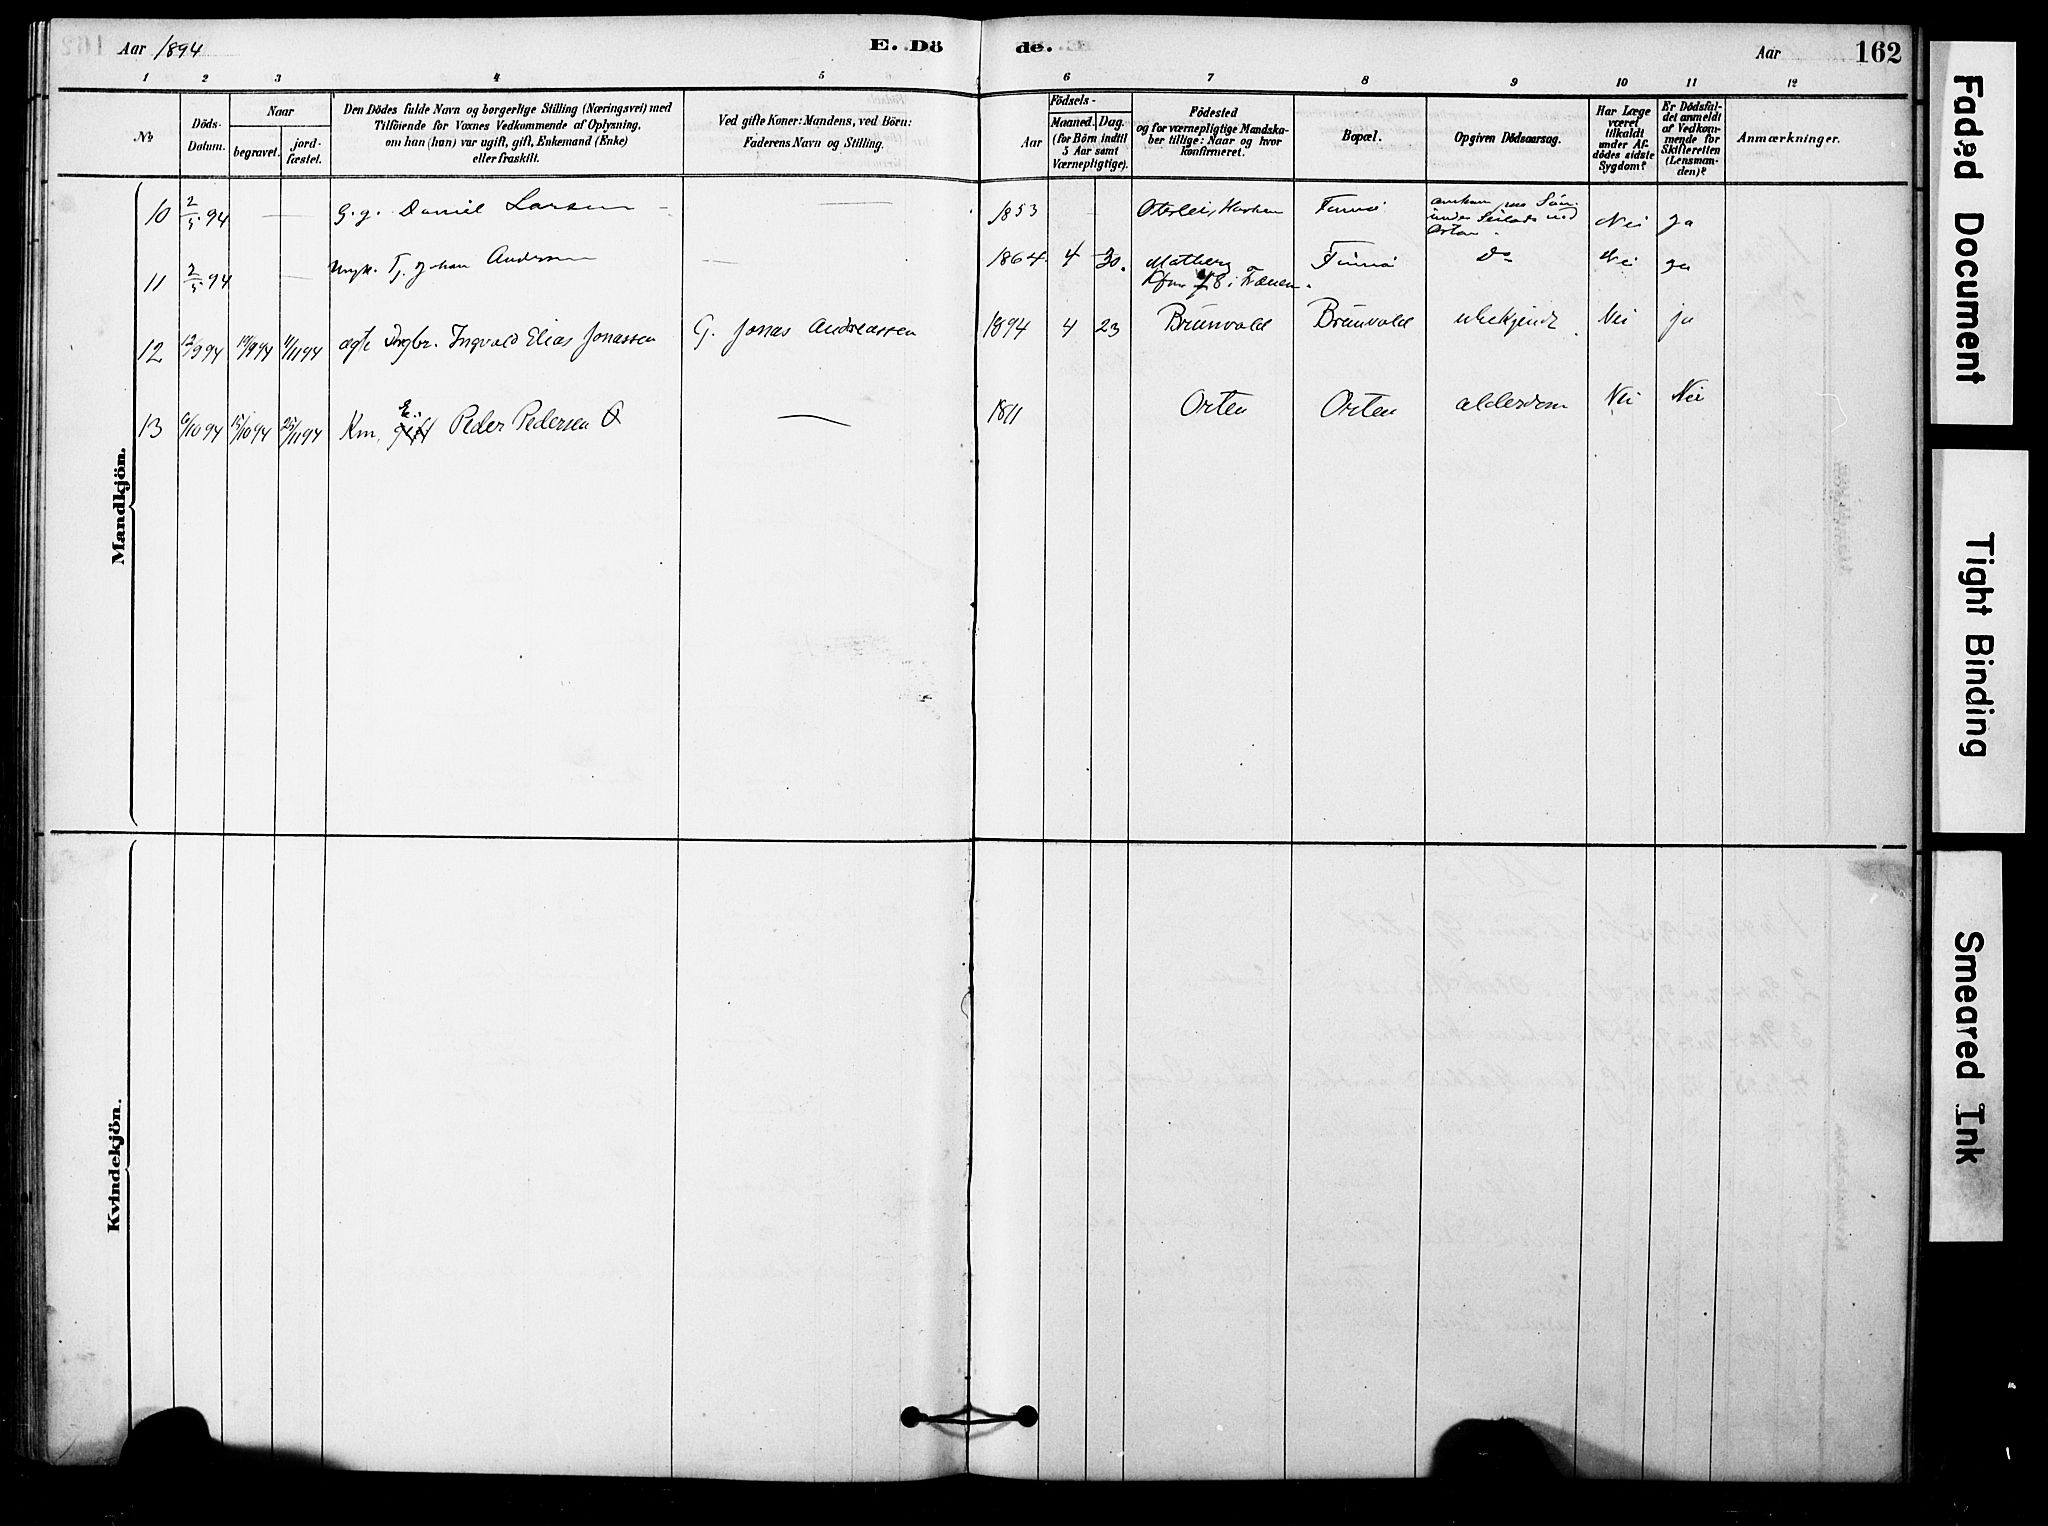 162
Aar 1894
E. Dö
de.
Aar
162
1 2 3 4 5 6 7 8 9 10 11 12
No
Döds-
Datum.
Naar
begravet.
jord-
fæstet.
Den Dödes fulde Navn og borgerlige Stilling (Næringsvei) med
Tilföiende for Voxnes Vedkommende af Oplysning,
om han (hun) var ugift, gift, Enkemand (Enke)
eller fraskilt.
Ved gifte Koner: Mandens, ved Börn:
Faderens Navn og Stilling.
Födsels-
Aar
Maaned. Dag.
(for Börn indtil
5 Aar samt
Værnepligtige).
Födested
og for værnepligtige Mandska-
ber tillige: Naar og hvor
konfirmeret.
Bopæl.
Opgiven Dödsaarsag.
Har Læge
været
tilkaldt
under Af-
dödes sidste
Sygdom?
Er Dödsfal-
det anmeldt
af Vedkom-
mende for
Skifteretten
(Lensman-
den)?
Anmærkninger.
Mandkjön.
10 2/5 94 — G.g. Daniel Larsen — 1853 Nei ja
under Seilads ved
Orten.
11 2/5 94 — Ungk. Tj. Johan Andersen — 1864 4 30. Do Nei ja
12 12/9 94 11/11 94 Ingvald Elias Jonassen G. Jonas Andreassen 1894 4 23 Brunvold Brunvold ubekjendt Nei ja
E.
13 6/10 94 15/10 94 25/11 94 Km. gift Peder Pedersen — 1811 Orten Orten alderdom Nei Nei
Kvindekjön.
Faded Document
Tight Binding
Smeared Ink